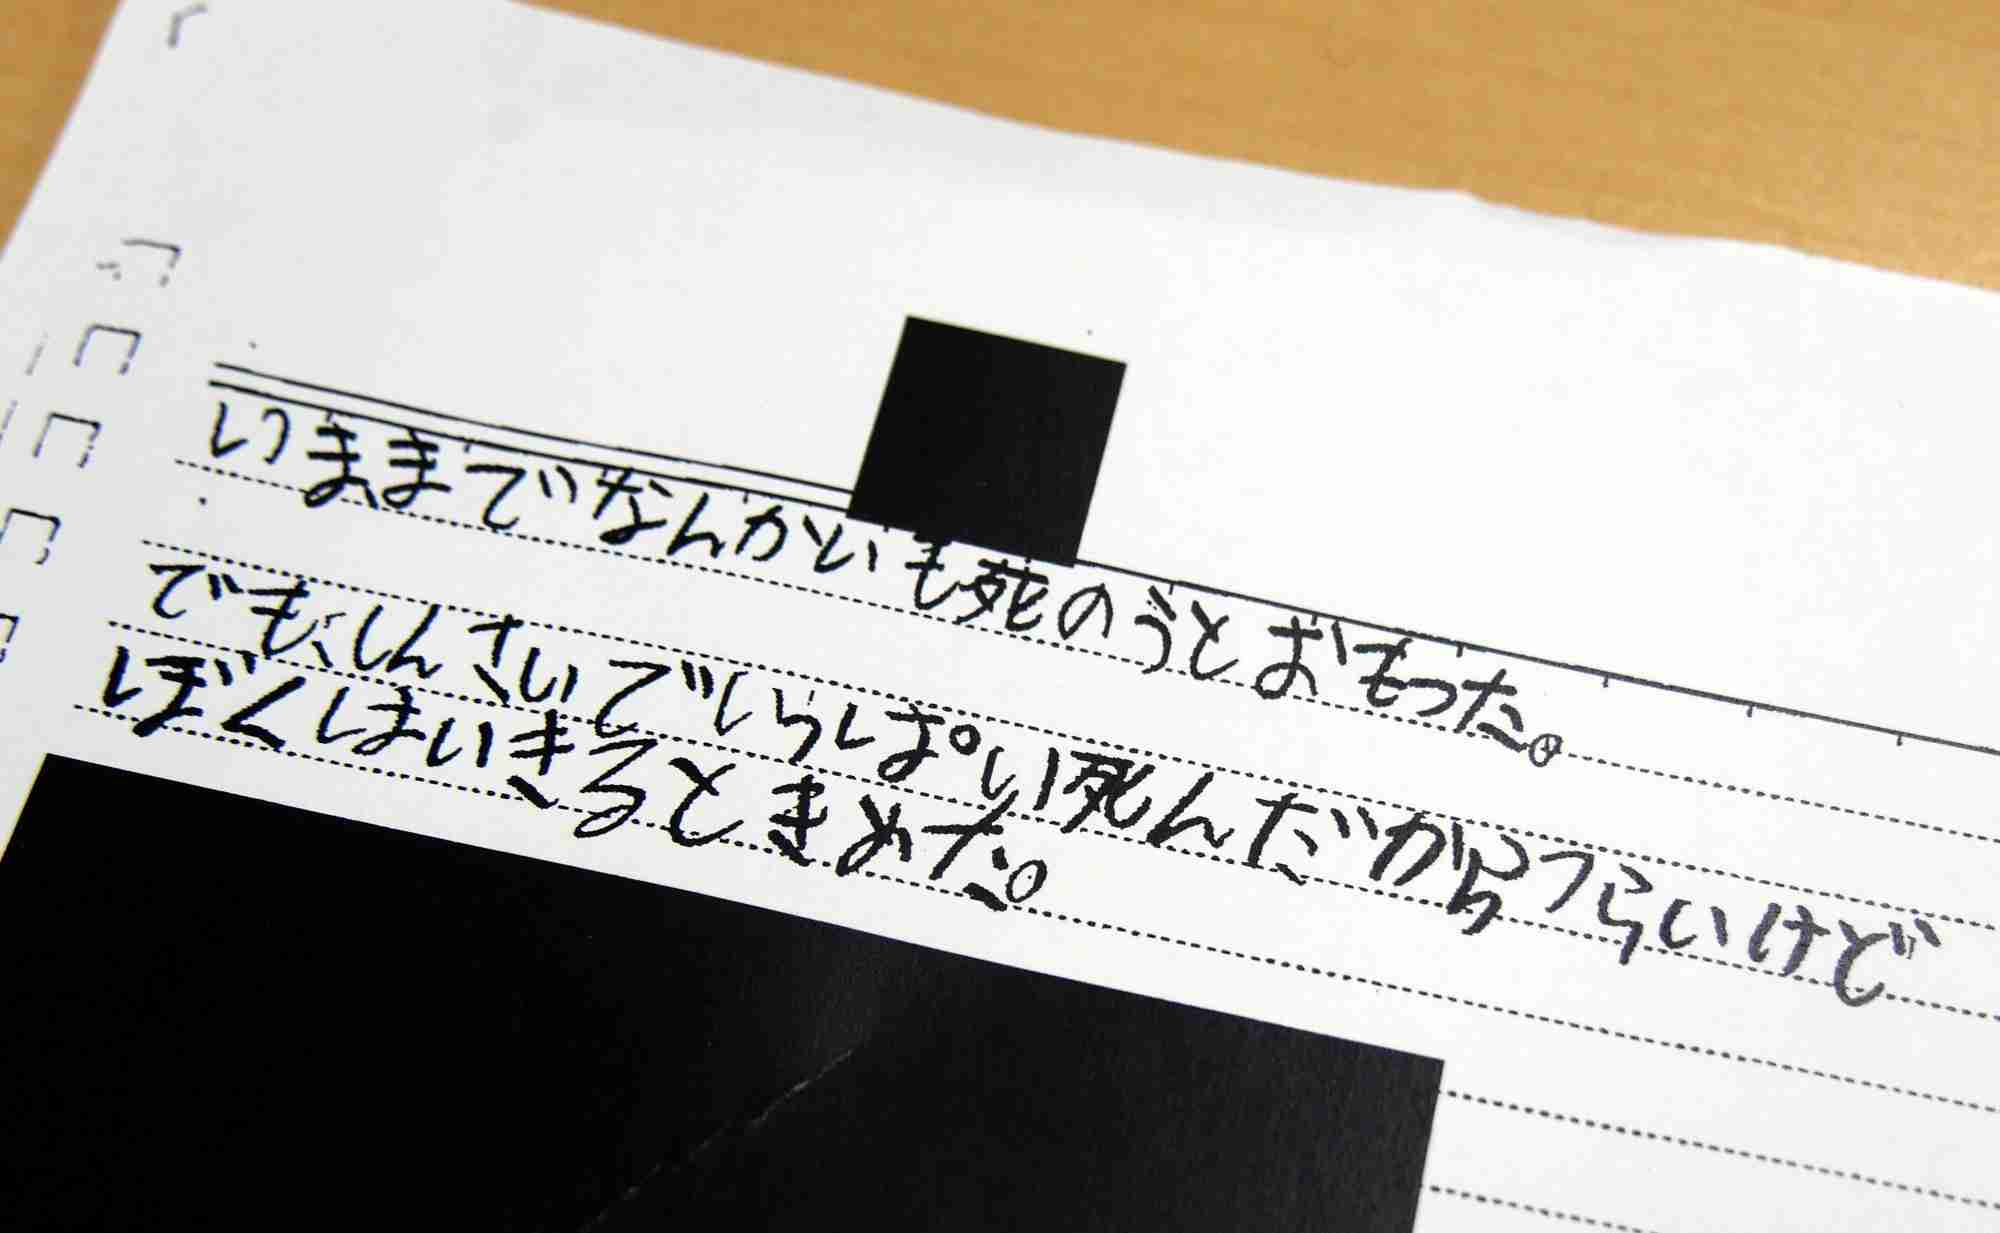 いままでなんかいも死のうとおもった。
でも、しんさいでいらぱい死んだからつらいけど
ぼくはいきるときめた。